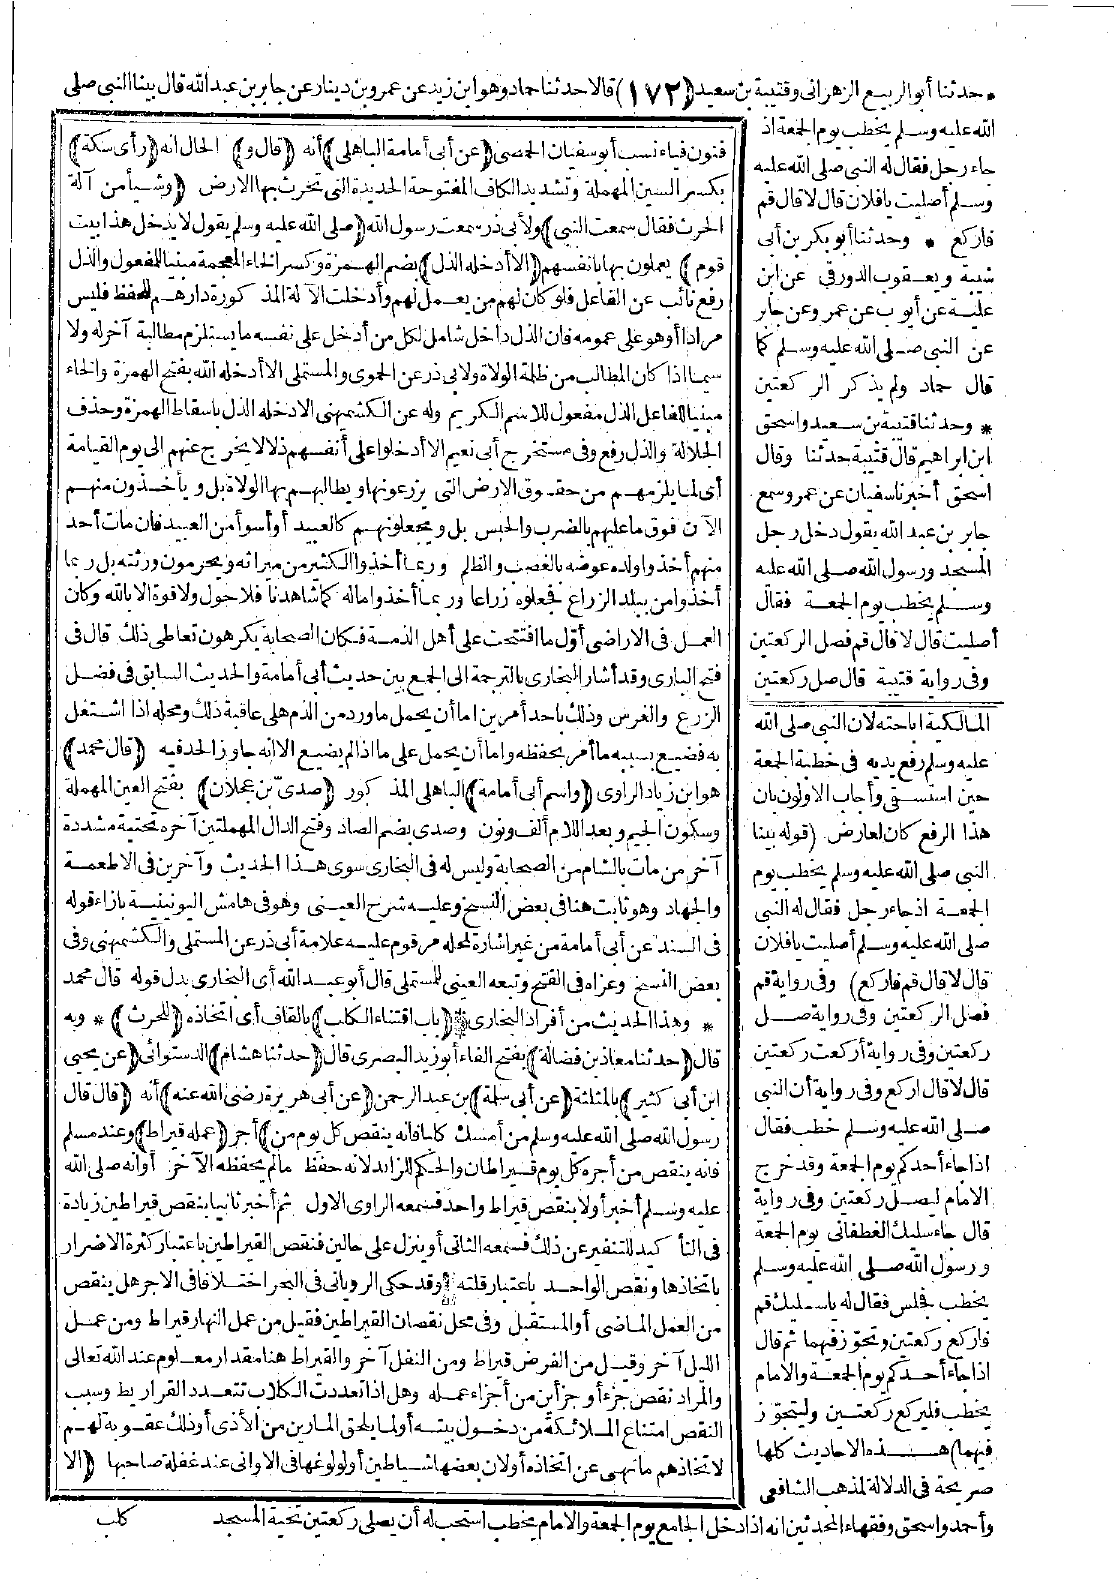 * حدثنا أبو الربيع الزهراني وقتيبة بن سعيد (١٧٢) قالا حدثنا حماد وهو ابن زيد عن عمرو بن دينار عن جابر بن عبد الله قال بينا النبي صلى
الله عليه وسلم يخطب يوم الجمعة اذ
جاء رجل فقال له النبي صلى الله عليه
وسلم أصليت يا فلان قال لا قال قم
فاركع * وحدثنا أبو بكر بن أبي
شيبة ويعقوب الدورقي عن ابن
علية عن أيوب عن عمرو عن جابر
عن النبي صلى الله عليه وسلم كما
قال حماد ولم يذكر الركعتين
* وحدثنا قتيبة بن سعيد واسحق
ابن ابراهيم قال قتيبة حدثنا وقال
اسحق أخبرنا سفيان عن عمرو سمع
جابر بن عبد الله يقول دخل رجل
المسجد ورسول الله صلى الله عليه
وسلم يخطب يوم الجمعة فقال
أصليت قال لا قال قم فصل الركعتين
وفي رواية قتيبة قال صل ركعتين
المالكية اباحته لان النبي صلى الله
عليه وسلم رفع يديه في خطبة الجمعة
حين استسقى وأجاب الاولون بان
هذا الرفع كان لعارض (قوله بينا
النبي صلى الله عليه وسلم يخطب يوم
الجمعة اذ جاء رجل فقال له النبي
صلى الله عليه وسلم أصليت يا فلان
قال لا قال قم فاركع) وفي رواية قم
فصل الركعتين وفي رواية صل
ركعتين وفي رواية أركعت ركعتين
قال لا قال اركع وفي رواية أن النبي
صلى الله عليه وسلم خطب فقال
اذا جاء أحدكم يوم الجمعة وقد خرج
الامام ليصل ركعتين وفي رواية
قال جاء سليك الغطفاني يوم الجمعة
ورسول الله صلى الله عليه وسلم
يخطب فجلس فقال له يا سليك قم
فاركع ركعتين وتجوز فيهما ثم قال
اذا جاء أحدكم يوم الجمعة والامام
يخطب فليركع ركعتين وليتجوز
فيهما) هذه الاحاديث كلها
صريحة في الدلالة لمذهب الشافعي
وأحمد واسحق وفقهاء المحدثين انه اذا دخل الجامع يوم الجمعة والامام يخطب استحب له أن يصلي ركعتين تحية المسجد
فنون فياء نسب أبو سفيان الحمصي (عن أبي أمامة الباهلي) أنه (قال و) الحال انه (رأى سكة)
بكسر السين المهملة وتشديد الكاف المفتوحة الحديدة التي تحرث بها الارض (وشيأ من آلة
الحرث فقال سمعت النبي) ولأبي ذر سمعت رسول الله (صلى الله عليه وسلم يقول لا يدخل هذا بيت
قوم) يعملون بها بانفسهم (الا أدخله الذل) بضم الهمزة وكسر الخاء المعجمة مبنيا للمفعول والذل
رفع نائب عن الفاعل فلو كان لهم من يعمل لهم وأدخلت الآلة المذكورة دارهم للحفظ فليس
مرادا أو هو على عمومه فان الذل داخل شامل لكل من أدخل على نفسه ما يستلزم مطالبة آخر له ولا
سيما اذا كان المطالب من ظلمة الولاة ولابي ذر عن الحموي والمستملي الا أدخله الله بفتح الهمزة والخاء
مبنيا للفاعل الذل مفعول للاسم الكريم وله عن الكشميهني الا دخله الذل باسقاط الهمزة وحذف
الجلالة والذل رفع وفي مستخرج أبي نعيم الا أدخلوا على أنفسهم ذلا لا يخرج عنهم الى يوم القيامة
أي لما يلزمهم من حقوق الارض التي يزرعونها ويطالبهم بها الولاة بل ويأخذون منهم
الآن فوق ما عليهم بالضرب والحبس بل ويجعلونهم كالعبيد أو أسوأ من العبيد فان مات أحد
منهم أخذوا ولده عوضه بالغصب والظلم وربما أخذوا الكثير من ميراثه ويحرمون ورثته بل ربما
أخذوا من ببلد الزراع فجعلوه زراعا وربما أخذوا ماله كما شاهدنا فلا حول ولا قوة الا بالله وكان
العمل في الاراضي أول ما افتتحت على أهل الذمة فكان الصحابة يكرهون تعاطي ذلك قال في
فتح الباري وقد أشار البخاري بالترجمة الى الجمع بين حديث أبي أمامة والحديث السابق في فضل
الزرع والغرس وذلك باحد أمرين اما أن يحمل ما ورد من الذم على عاقبة ذلك ومحله اذا اشتغل
به فضيع بسببه ما أمر بحفظه واما أن يحمل على ما اذا لم يضيع الا انه جاوز الحد فيه (قال محمد)
هو ابن زياد الراوي (واسم أبي أمامة) الباهلي المذكور (صدي بن عجلان) بفتح العين المهملة
وسكون الجيم وبعد اللام ألف ونون وصدي بضم الصاد وفتح الدال المهملتين آخره تحتية مشددة
آخر من مات بالشام من الصحابة وليس له في البخاري سوى هذا الحديث وآخرين في الاطعمة
والجهاد وهو ثابت هنا في بعض النسخ وعليه شرح العيني وهو في هامش اليونينية بازاء قوله
في السند عن أبي أمامة من غير اشارة لمحله مرقوم عليه علامة أبي ذر عن المستملي والكشميهني وفي
بعض النسخ وعزاه في الفتح وتبعه العيني للمستملي قال أبو عبد الله أي البخاري بدل قوله قال محمد
* وهذا الحديث من أفراد البخاري (باب اقتناء الكلب) بالقاف أي اتخاذه (للحرث) * وبه
قال (حدثنا معاذ بن فضالة) بفتح الفاء أبو زيد البصري قال (حدثنا هشام) الدستوائي (عن يحيى
ابن أبي كثير) بالمثلثة (عن أبي سلمة) بن عبد الرحمن (عن أبي هريرة رضي الله عنه) أنه (قال قال
رسول الله صلى الله عليه وسلم من أمسك كلبا فانه ينقص كل يوم من) أجر (عمله قيراط) وعند مسلم
فانه ينقص من أجره كل يوم قيراطان والحكم للزائد لانه حفظ ما لم يحفظه الآخر أو انه صلى الله
عليه وسلم أخبر أولا بنقص قيراط واحد فسمعه الراوي الاول ثم أخبر ثانيا بنقص قيراطين زيادة
في التأكيد للتنفير عن ذلك فسمعه الثاني أو ينزل على حالين فنقص القيراطين باعتبار كثرة الاضرار
باتخاذها ونقص الواحد باعتبار قلته وقد حكى الروياني في البحر اختلافا في الاجر هل ينقص
من العمل الماضي أو المستقبل وفي محل نقصان القيراطين فقيل من عمل النهار قيراط ومن عمل
الليل آخر وقيل من الفرض قيراط ومن النفل آخر والقيراط هنا مقدار معلوم عند الله تعالى
والمراد نقص جزء أو جزأين من أجزاء عمله وهل اذا تعددت الكلاب تتعدد القراريط وسبب
النقص امتناع الملائكة من دخول بيته أو لما يلحق المارين من الأذى أو ذلك عقوبة لهم
لاتخاذهم ما نهى عن اتخاذه أو لان بعضها شياطين أو لولوغها في الاواني عند غفلة صاحبها (الا
كلب